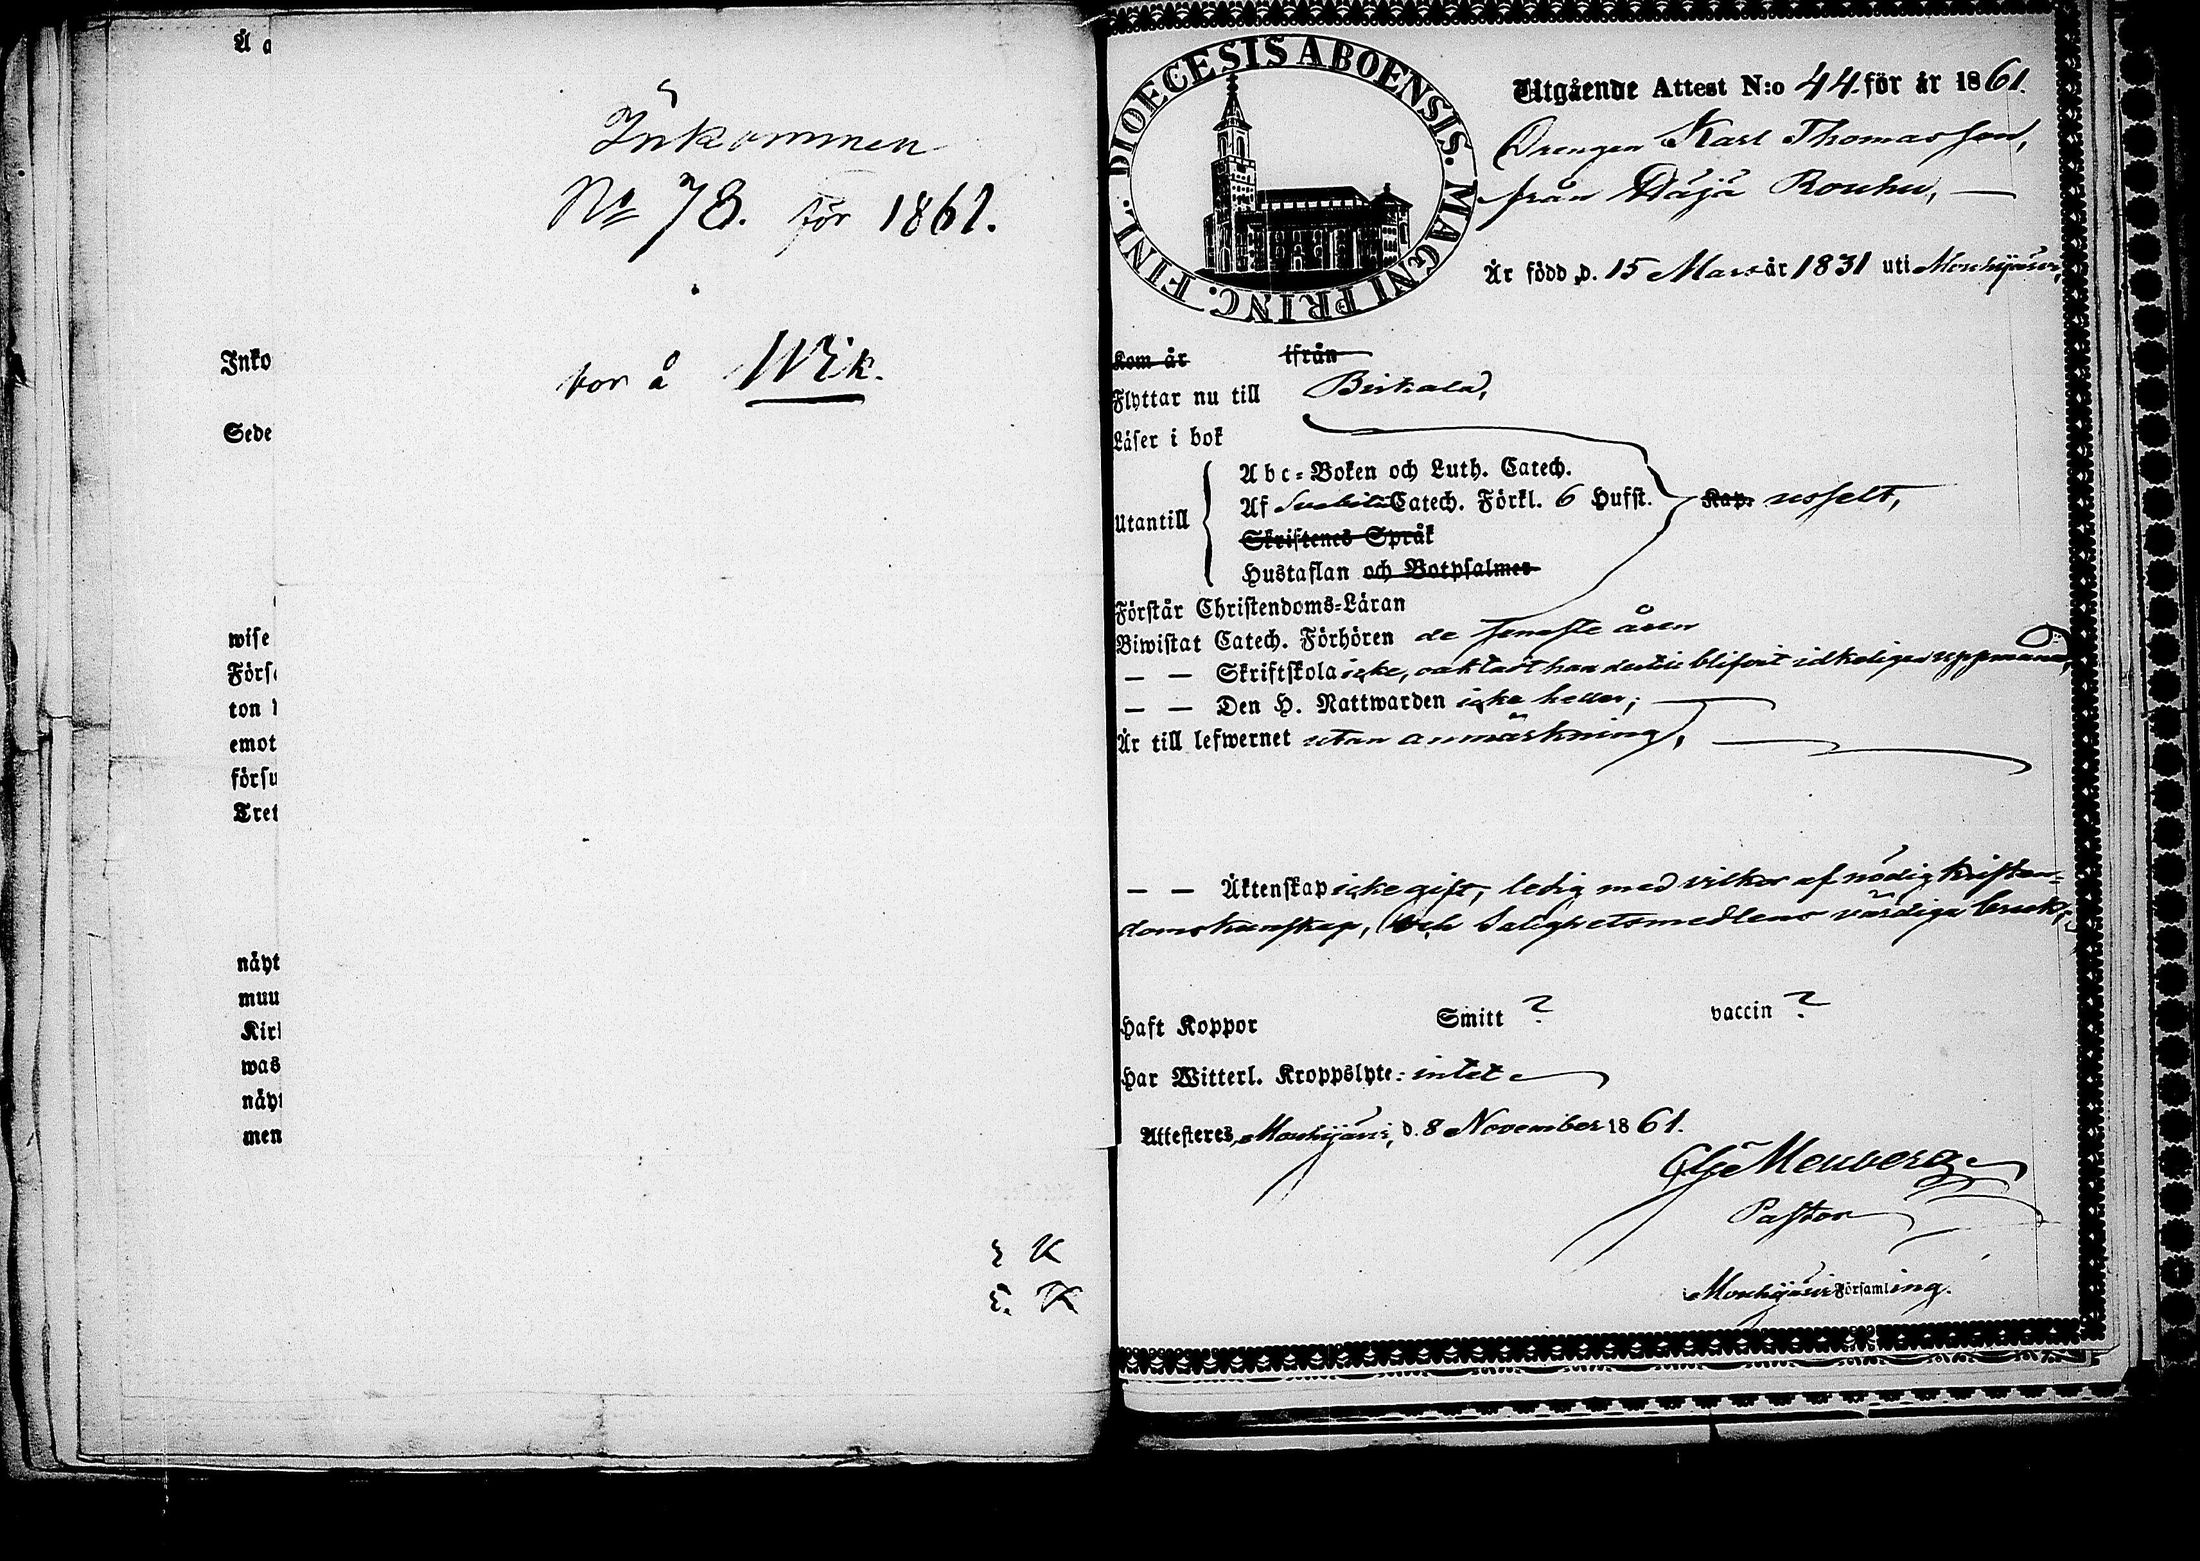 Å a
Inkommen
No 78. för 1861.
Inko
bor å Wik.
Sede
wise
Förs
ton
emot
försu
Tret
näyt
muu
Kirk
was
näyt
men
DIOECESIS ABOENSIS. MAGNI PRINC. FINL.
Utgående Attest N:o 44 för år 1861.
Drengen Karl Thomasson,
från Häijä Rouhu,
Är född d. 15 Mars år 1831 uti Mouhijärvi,
Kom år ifrån
Flyttar nu till Birkala,
Läser i bok
Utantill
Abc-Boken och Luth. Catech.
Af Svebilii Catech. Förkl. 6 Hufst. Kap. usselt,
Skriftenes Språk
Hustaflan och Botpsalmer
Förstår Christendoms-Läran
Biwistat Catech. Förhören de seneste åren
— — Skriftskola icke, oaktadt han dertill blifvit idkeligen uppmanad,
— — Den H. Nattwarden icke heller;
Är till lefwernet utan anmärkning,
— — Äktenskap icke gift, ledig med vilkor af nödig kristen-
domskunskap, och Salighetsmedlens värdiga bruk,
Haft Koppor Smitt ? vaccin ?
Har Witterl. Kroppslyte: intet
Attesteres, Mouhijärvi, d. 8 November 1861.
Pastor
Mouhijärvi Församling.